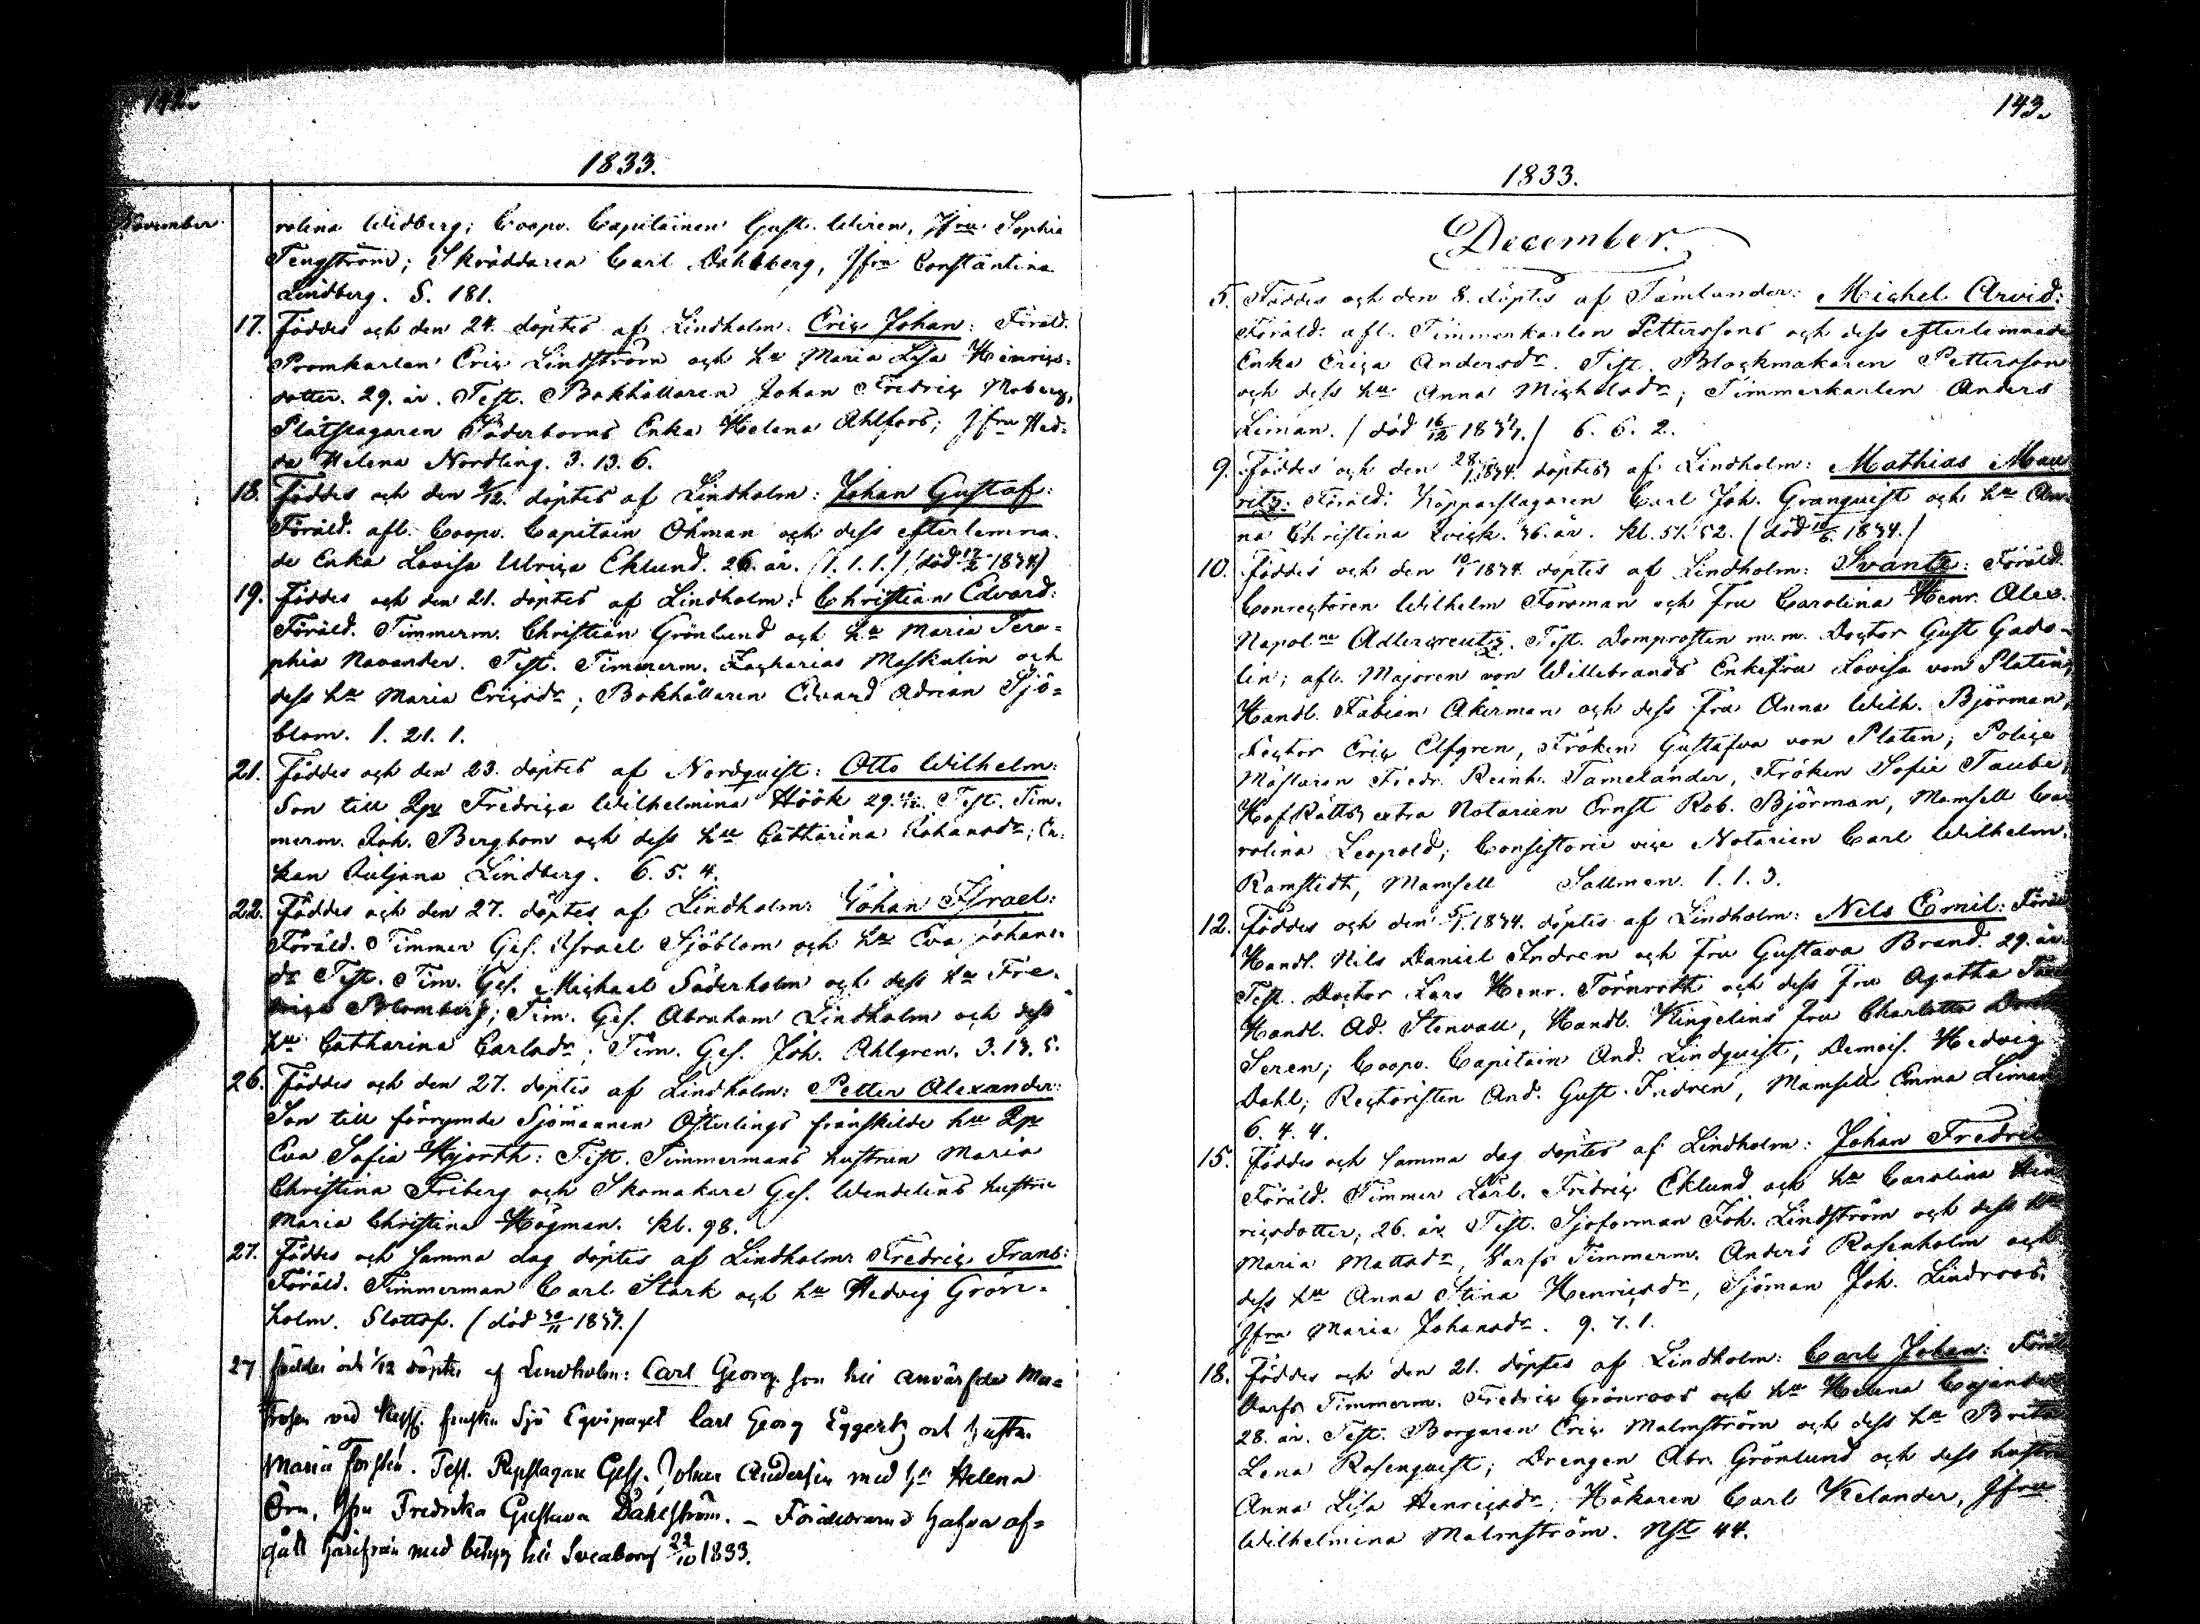 142.
1833.
November
rolina Widberg; Coopv. Capitainen Gust. Wiren, Jfru Sophia
Tengström; Skräddaren Carl Dahlberg, Jfru Constantina
Lindberg. S. 181.
17. Föddes och den 24. döptes af Lindholm: Eric Johan: Föräld.
Promkarlen Eric Lindström och hu Maria Lisa Henrics-
dotter. 29. år. Test. Bokhållaren Johan Fredric Moberg,
Plåtslagaren Söderborns Enka Helena Ahlfors; Jfru Hed-
da Helena Nordling. 3. 13. 6.
18. Föddes och den /12. döptes af Lindholm: Johan Gustaf:
Föräld. afl. Coopv. Capitain Öhman och dess efterlemna-
de Enka Lovisa Ulrica Eklund. 26. år. (1. 1. 1.) (död 1834)
19. Föddes och den 21. döptes af Lindholm: Christian Edvard:
Föräld. Timmerm. Christian Grönlund och hu Maria Sera-
phia Navander. Test. Timmerm. Zacharias Maskulin och
dess hu Maria Ericsdr; Bokhållaren Edvard Adrian Sjö-
blom. 1. 21. 1.
21. Föddes och den 23. döptes af Nordquist: Otto Wilhelm:
Son till Qp Fredrica Wilhelmina Höök 29. Test. Tim-
merm. Joh. Bergbom och dess hu Catharina Johansdr; En-
kan Juljana Lindberg. 6. 5. 4.
22. Föddes och den 27. döptes af Lindholm: Johan Israel:
Föräld. Timmer Ges. Israel Sjöblom och hu Eva Johans-
dr Test. Tim. Ges. Michael Söderholm och dess hu Fre-
drica Blomberg; Tim. Ges. Abraham Lindholm och dess
hu Catharina Carlsdr; Tim. Ges. Joh. Ahlgren. 3. 13. 5.
26. Föddes och den 27. döptes af Lindholm: Petter Alexander:
Son till förrymde Sjömannen Österlings frånskilde hu Qp
Eva Sofia Hjorth: Test. Timmermans hustrun Maria
Christina Friberg och Skomakare Ges. Wendelins hustru
Maria Christina Högman. kl. 98.
27. Föddes och samma dag döptes af Lindholm: Fredric Frans:
Föräld. Timmerman Carl Stark och hu Hedvig Grön-
holm. Slottsf. (död 30/11 1833.)
27 föddes och 1/12 döptes af Lindholm: Carl Georg. son till anvärfda Ma-
trosen vid Kejs. finska Sjö Equipaget Carl Georg Eggertz och hustru
Maria Forstén. Test. Repslagare Gess. Johan Andersin med hu Helena
Örn, Jfru Fredrika Gustava Dahlström. - Föräldrarne hafva af-
gått härifrån med betyg till Sveaborg 22/10 1833.
143.
1833.
December.
5. Föddes och den 8. döptes af Tämlander: Michel Arvid:
Föräld: afl. Timmerkarlen Petterssons och dess efterlemnade
Enka Erica Andersdr. Test. Blockmakaren Pettersson
och dess hu Anna Michelsdr; Timmerkarlen Anders
Liman. (död 16/12 1833.) 6. 6. 2.
9. Föddes och den 28/1 1834. döptes af Lindholm: Mathias Mau-
ritz: Föräld: Kopparslagaren Carl Joh. Granquist och hu An-
na Christina Zvick. 36. år. kl. 51. 52. (död 1834.)
10. Föddes och den 10/1 1834 döptes af Lindholm: Svante: Föräld.
Conrectoren Wilhelm Forsman och fru Carolina Henr. Alex.
Napolna Adlercreutz. Test. Domprosten m. m. Doctor Gust Gado-
lin; afl. Majoren von Willebrands Enkefru Lovisa von Platen,
Handl. Fabian Åkerman och dess fru Anna Wilh. Björman,
Lector Eric Elfgren, Fröken Gustafva von Platen; Police
Mästaren Fredr. Reinh. Tamelander, Fröken Sofie Taube,
Hof Rätts extra Notarien Ernst Rob. Björman, Mamsell Ca-
rolina Leopold; Consistorii vice Notarien Carl Wilhelm
Ramstedt, Mamsell Sallmen. 1. 1. 3.
12. Föddes och den /1 1834. döptes af Lindholm: Nils Emil: Föräld
Handl. Nils Daniel Indren och fru Gustava Brand. 29. år.
Test. Doctor Lars Henr. Törnroth och dess fru Agatha
Handl. Ad. Stenvall, Handl. Kingelins fru Charlotta
Seren; Coopv. Capitain And. Lindquist, Demois. Hedvig
Dahl; Rectoristen And. Gust. Indren, Mamsell Emma Liman
6. 4. 4.
15. Föddes och samma dag döptes af Lindholm: Johan Fredric
Föräld. Timmer Karl. Fridric Eklund och hu Carolina Hen-
ricsdotter, 26. år Test. Sjöforman Joh. Lindström och dess hu
Maria Mattsdr, Varfs Timmerm. Anders Rosenholm och
dess hu Anna Stina Henricsdr, Sjöman Joh. Lindroos.
Jfru Maria Johansdr. 9. 7. 1.
18. Föddes och den 21. döptes af Lindholm: Carl Johan: Föräld
Varfs Timmerm. Fredric Grönroos och hu Helena Cajander
28. år. Test. Borgaren Eric Malmström och dess hu Brita
Lena Rosenquist; Drengen Abr. Grönlund och dess hustru
Anna Lisa Henricsdr; Hökaren Carl Welander, Jfru
Wilhelmina Malmström. Nst 44.